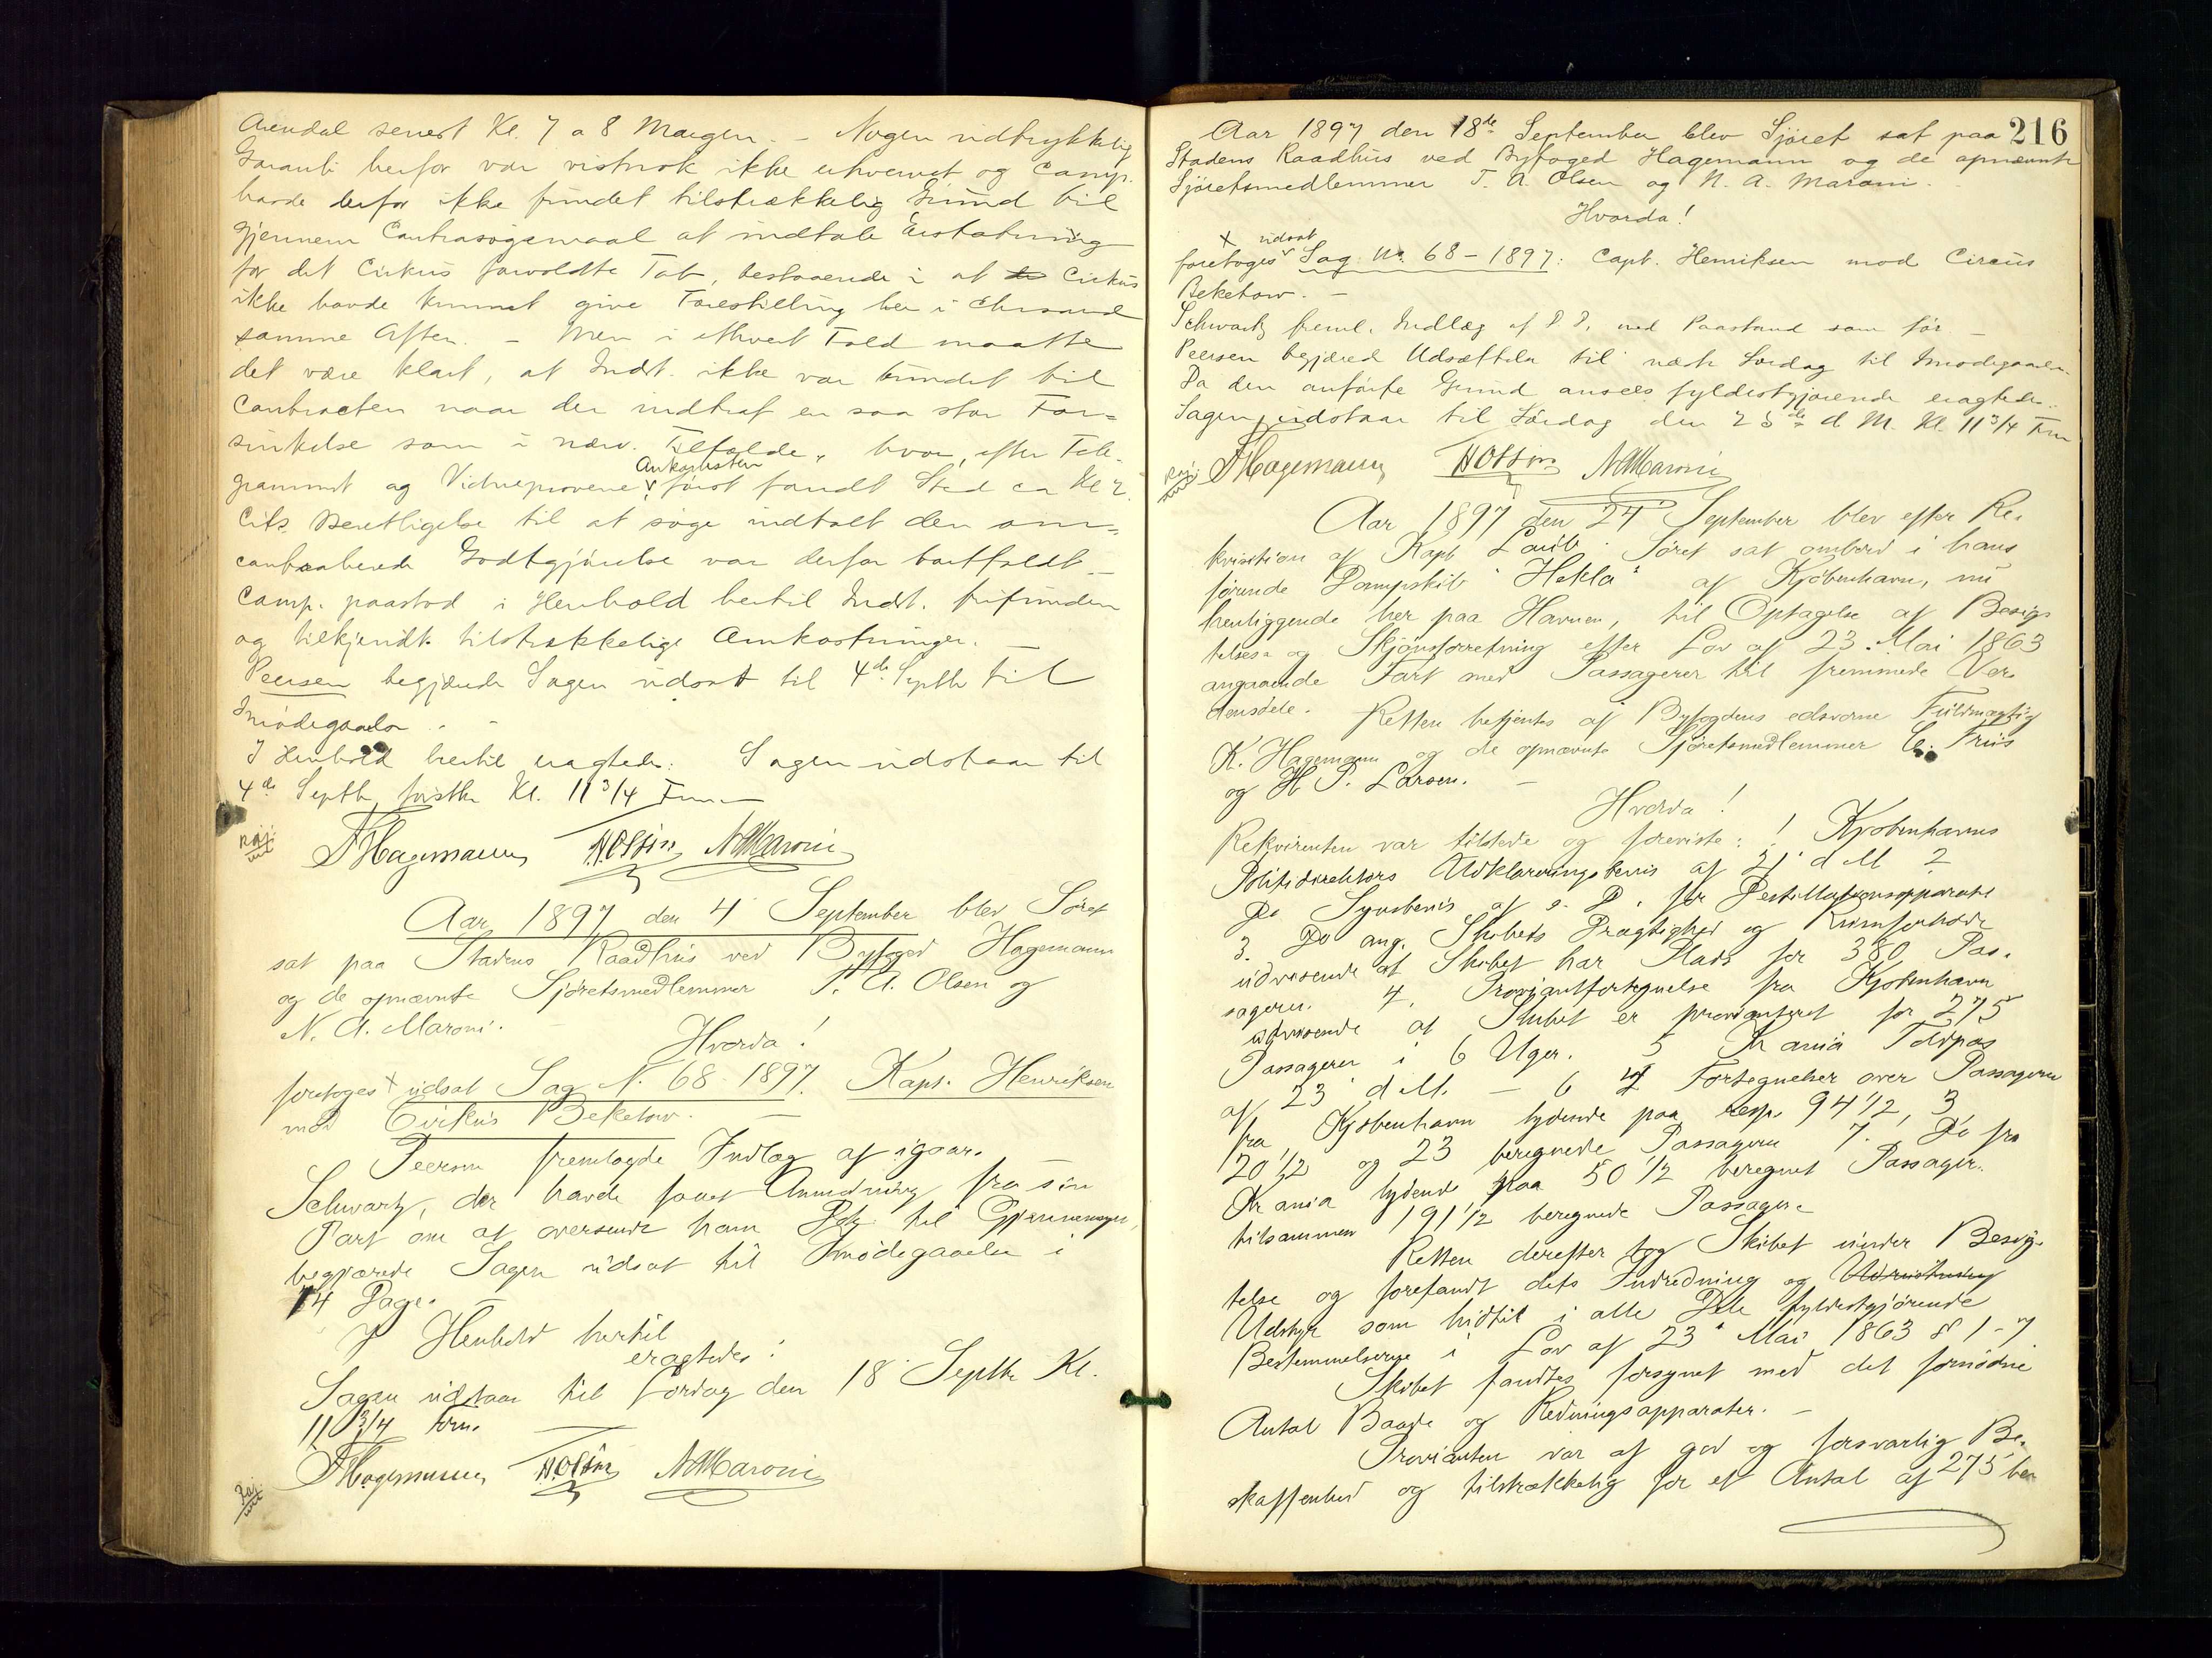 Arendal senest Kl. 7 a 8 Morgen. - Nogen udtrykkelig
Garanti herfor var vistnok ikke erhvervet og Comp.
havde derfor ikke fundet tilstrækkelig Grund til
gjennem Contrasøgsmaal at indtale Erstatning
for det Cirkus forvoldte Tab, bestaaende i at Cirkus
ikke havde kunnet give Forestilling her i Chrsand
samme Aften. - Men i ethvert Fald maatte
det være klart, at Indst. ikke var bundet til
Contracten naar der indtraf en saa stor For=
sinkelse som i nærv. Tilfælde, hvor, efter Tele-
Ankomsten
grammet og Vidneprovene først fandt Sted ca Kl 2.
Cits. Berettigelse til at søge indtalt den om=
contraherede Godtgjørelse var derfor bortfaldt.
Comp. paastod i Henhold hertil Indst. frifunden
og tilkjendt tilstrækkelige Omkostninger. —
Peersen begjærede Sagen udsat til 4de Septbr til
Imødegaaelse. -
I Henhold hertil eragtedes: Sagen udstaar til
4de Septbr førstk. Kl. 11 3/4 Fm. —
FHagemann TAOlsen NAMaroni
Aar 1897 den 4 September blev Søret
sat paa Stadens Raadhus ved Byfoged Hagemann
og de opnævnte Sjøretsmedlemmer T. A. Olsen og
N. A. Maroni. —
Hvorda!
foretoges × udsat Sag N. 68. 1897. Kapt. Henriksen
mod Cirkus Beketow. —
Peersen fremlagde Indlæg af igaar. —
Schwartz, der havde faaet Anmodning fra sin
Part om at oversende ham Dok. til Gjennemsyn,
begjærede Sagen udsat til Imødegaaelse i
14 Dage. —
I Henhold hertil
eragtedes:
Sagen udstaar til Lørdag den 18 Septbr Kl.
11 3/4 Form. —
FHagemann TAOlsen NAMaroni
216
Aar 1897 den 18de September blev Sjøret sat paa
Stadens Raadhus ved Byfoged Hagemann og de opnævnte
Sjøretsmedlemmer T. A. Olsen og N. A. Maroni.
Hvorda!
× udsat
foretoges Sag No. 68 - 1897: Capt. Henriksen mod Circus
Beketow. —
Schwartz freml. Indlæg af D. D. med Paastand som før. —
Peersen begjæred Udsættelse til næste Lørdag til Imødegaaelse.
Da den anførte Grund ansees fyldestgjørende eragtedes:
Sagen udstaar til Lørdag den 25de d M. Kl. 11 3/4 Fm
FHagemann TAOlsen NAMaroni
Aar 1897 den 24 September blev efter Re-
kvisition af Kapt Laub Søret sat ombord i hans
førende Dampskib "Hekla" af Kjøbenhavn, nu
henliggende her paa Havnen, til Optagelse af Besigt
telses- og Skjønsforretning efter Lov af 23. Mai 1863
angaaende Fart med Passagerer til fremmede Ver-
densdele. Retten betjentes af Byfogdens edsvorne Fuldmægtig
K. Hagemann og de opnævnte Sjøretsmedlemmer C. Friis
og H P. Larsen. —
Hvorda!
Rekvirenten var tilstede og foreviste: 1 Kjøbenhavns
Politidirektørs Udklareringsbevis af 21 d M 2
Do Synsbevis af s. D. for Destillationsapparatet
3. Do ang. Skibets Drægtighed og Rumforhold
udvisende at Skibet har Plads for 380 Pas-
sagerer. 4. Proviantfortegnelse fra Kjøbenhavn
udvisende at Skibet er provianteret for 275
Passagerer i 6 Uger. 5 Kr ania Toldpas
af 23 d M. — 6 4 Fortegnelser over Passagerer
fra Kjøbenhavn lydende paa resp. 94 1/2, 3
20 1/2 og 23 beregnede Passagerer 7. Do fra
Kr ania lydende paa 50 1/2 beregnet Passager.
tilsammen 191 1/2 beregnede Passager.
Retten derefter tog Skibet under Besig-
telse og forefandt dets Indredning og Udrustning
Udstyr som hidtil i alle Dele fyldestgjørende
Bestemmelserne i Lov af 23 Mai 1863 § 1-7
Skibet fandtes forsynet med det fornødne
Antal Baade og Redningsapparater. —
Provianten var af god og forsvarlig Be-
skaffenhed og tilstrækkelig for et Antal af 275 ber